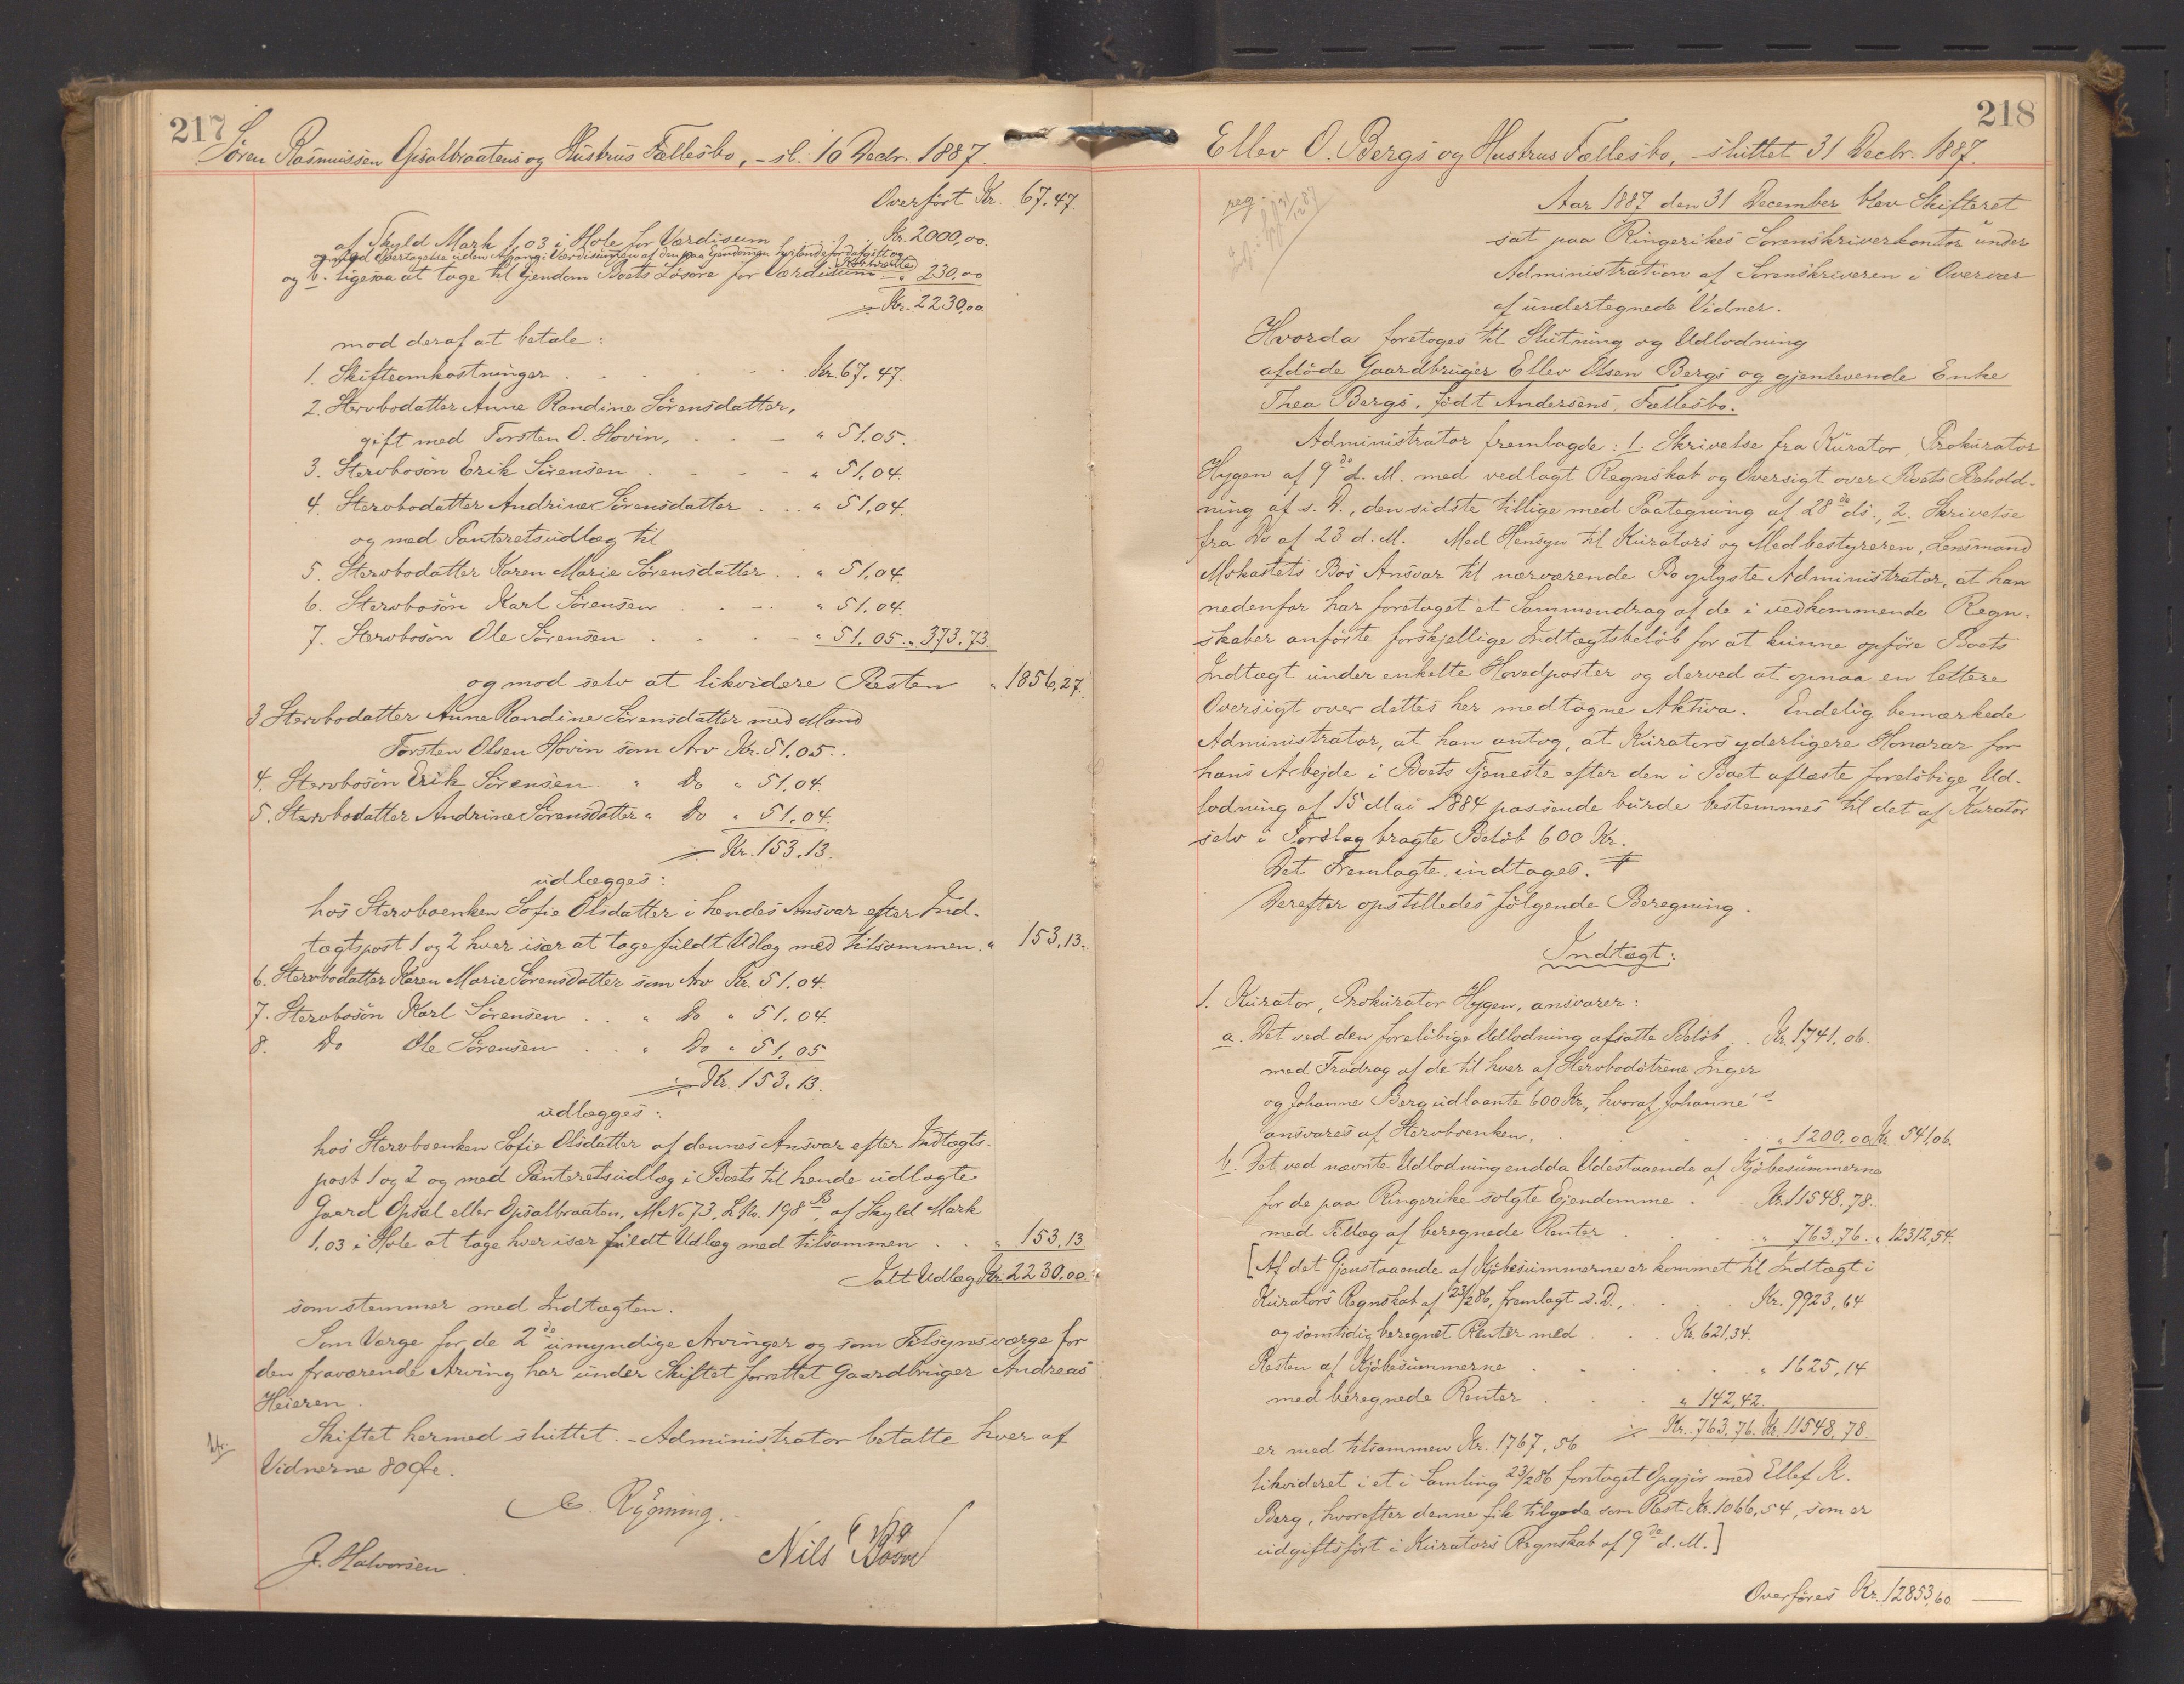 217
Søren Rasmussen Opsalbraatens og Hustrus Fællesbo, - sl. 10 Decbr. 1887.
Overført Kr. 67.47.
af Skyld Mark 1,03 i Hole for Værdisum . . Kr. 2000,00.
og med Overtagelse uden Afgang i Værdisummen af den paa Ejendommen hvilende fordafgift og
og b. ligesaa at tage til Ejendom Boets Løsøre for Værdisum - " 230,00
÷ Kr. 2230,00.
mod deraf at betale:
1. Skifteomkostninger . . . . . . Kr. 67.47.
2. Stervbodatter Anne Randine Sørensdatter,
gift med Torsten O. Hovin, . . - " 51.05.
3. Stervbosøn Erik Sørensen . . . - " 51,04.
4. Stervbodatter Andrine Sørensdatter . . . " 51,04.
og med Panteretsudlæg til
5. Stervbodatter Karen Marie Sørensdatter . . " 51,04.
6. Stervbosøn Karl Sørensen . . - . " 51.04.
7. Stervbosøn Ole Sørensen . . . - " 51.05. " 373.73.
og mod selv at likvidere Resten " 1856,27.
3 Stervbodatter Anne Randine Sørensdatter med Mand
Torsten Olsen Hovin som Arv Kr. 51.05..
4. Stervbosøn Erik Sørensen " Do " 51.04.
5. Stervbodatter Andrine Sørensdatter " Do " 51.04.
÷ Kr. 153.13.
udlægges:
hos Stervboenken Sofie Olsdatter i hendes Ansvar efter Ind-
tægtspost 1 og 2 hver især at tage fuldt Udlæg med tilsammen . " 153.13..
6. Stervbodatter Karen Marie Sørensdatter som Arv Kr. 51.04.
7. Stervbosøn Karl Sørensen . . " Do " 51.04.
8. Do Ole Sørensen . . " Do " 51,05
÷ Kr. 153.13.
udlægges:
hos Stervboenken Sofie Olsdatter af dennes Ansvar efter Indtægts-
post 1 og 2 og med Panteretsudlæg i Boets til hende udlagte
Gaard Opsal eller Opsalbraaten, M.No 73, L.No. 198 B, af Skyld Mark
1.03 i Hole at tage hver især fuldt Udlæg med tilsammen . . " 153.13
Ialt Udlæg Kr. 2230.00.
som stemmer med Indtægten.
Som Værge for de 2de umyndige Arvinger og som Tilsynsværge for
den fraværende Arving har under Skiftet forrettet Gaardbruger Andreas
Heieren.
Skiftet hermed sluttet. - Administrator betalte hver af
Vidnerne 80 Øre.
J. Halvorsen.
Nils
218
Ellev O. Bergs og Hustrus Fællesbo, - sluttet 31 Decbr. 1887.
reg. 31/12 87
Aar 1887 den 31 December blev Skifteret
sat paa Ringerikes Sorenskriverkontor under
Administration af Sorenskriveren i Overvær
af undertegnede Vidner.
Hvorda foretoges til Slutning og Udlodning
afdøde Gaardbruger Ellev Olsen Bergs og gjenlevende Enke
Thea Bergs, født Andersens, Fællesbo.
Administrator fremlagde: 1. Skrivelse fra Kurator, Prokurator
Hygen af 9de d. M. med vedlagt Regnskab og Oversigt over Boets Behold-
ning af s. D., den sidste tillige med Paategning af 28de ds., 2. Skrivelse
fra Do af 23 d. M. Med Hensyn til Kurators og Medbestyreren, Lensmand
Mokastets Bos Ansvar til nærværende Bo oplyste Administrator, at han
nedenfor har foretaget et Sammendrag af de i vedkommende Regn-
skaber anførte forskjellige Indtægtsbeløb for at kunne opføre Boets
Indtægt under enkelte Hovedposter og derved at opnaa en lettere
Oversigt over dettes her medtagne Aktiva. Endelig bemærkede
Administrator, at han antog, at Kurators yderligere Honorar for
hans Arbejde i Boets Tjeneste efter den i Boet aflæste foreløbige Ud-
lodning af 15 Mai 1884 passende burde bestemmes til det af Kurator
selv i Forslag bragte Beløb 600 Kr.
Det Fremlagte indtages.
Derefter opstilledes følgende Beregning.
Indtægt:
1. Kurator, Prokurator Hygen, ansvarer:
a. Det ved den foreløbige Udlodning afsatte Beløb . Kr. 1741.06.
med Fradrag af de til hver af Stervbodøtrene Inger
og Johanne Berg udlaante 600 Kr., hvoraf Johanne's
ansvares af Stervboenken, . . . . . " 1200.00 Kr. 541.06.
b. Det ved nævnte Udlodning endda Udestaaende af Kjøbesummerne
for de paa Ringerike solgte Ejendomme . Kr. 11548.78.
med Tillæg af beregnede Renter . . . . " 763.76. " 12312,54.
[Af det Gjenstaaende af Kjøbesummerne er kommet til Indtægt i
Kurators Regnskab af 23/2 86, fremlagt s. D., . . . Kr. 9923,64
og samtidig beregnet Renter med . . . Kr. 621,34.
Resten af Kjøbesummerne . . . . . " 1625,14
med beregnede Renter . . . . " 142,42.
÷ Kr. 763.76. Kr. 11548.78.
er med tilsammen Kr. 1767,56
likvideret i et i Samling 23/2 86 foretaget Opgjør med Ellef K.
Berg, hvorefter denne fik tilgode som Rest Kr. 1066,54, som er
udgiftsført i Kurators Regnskab af 9de d. M.]
Overføres Kr. 12853,60